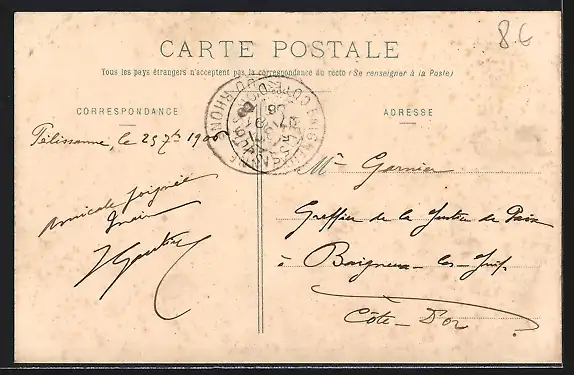 8.6
CARTE POSTALE
Tous les pays étrangers n'acceptent pas la correspondance au recto (Se renseigner à la Poste)
CORRESPONDANCE
ADRESSE
Pélissanne, le 25 7bre 1908
Mr Garnier
Amicale poignée
de main
Greffier de la Justice de Paix
à Baigneux-les-Juifs
Côte-D'Or